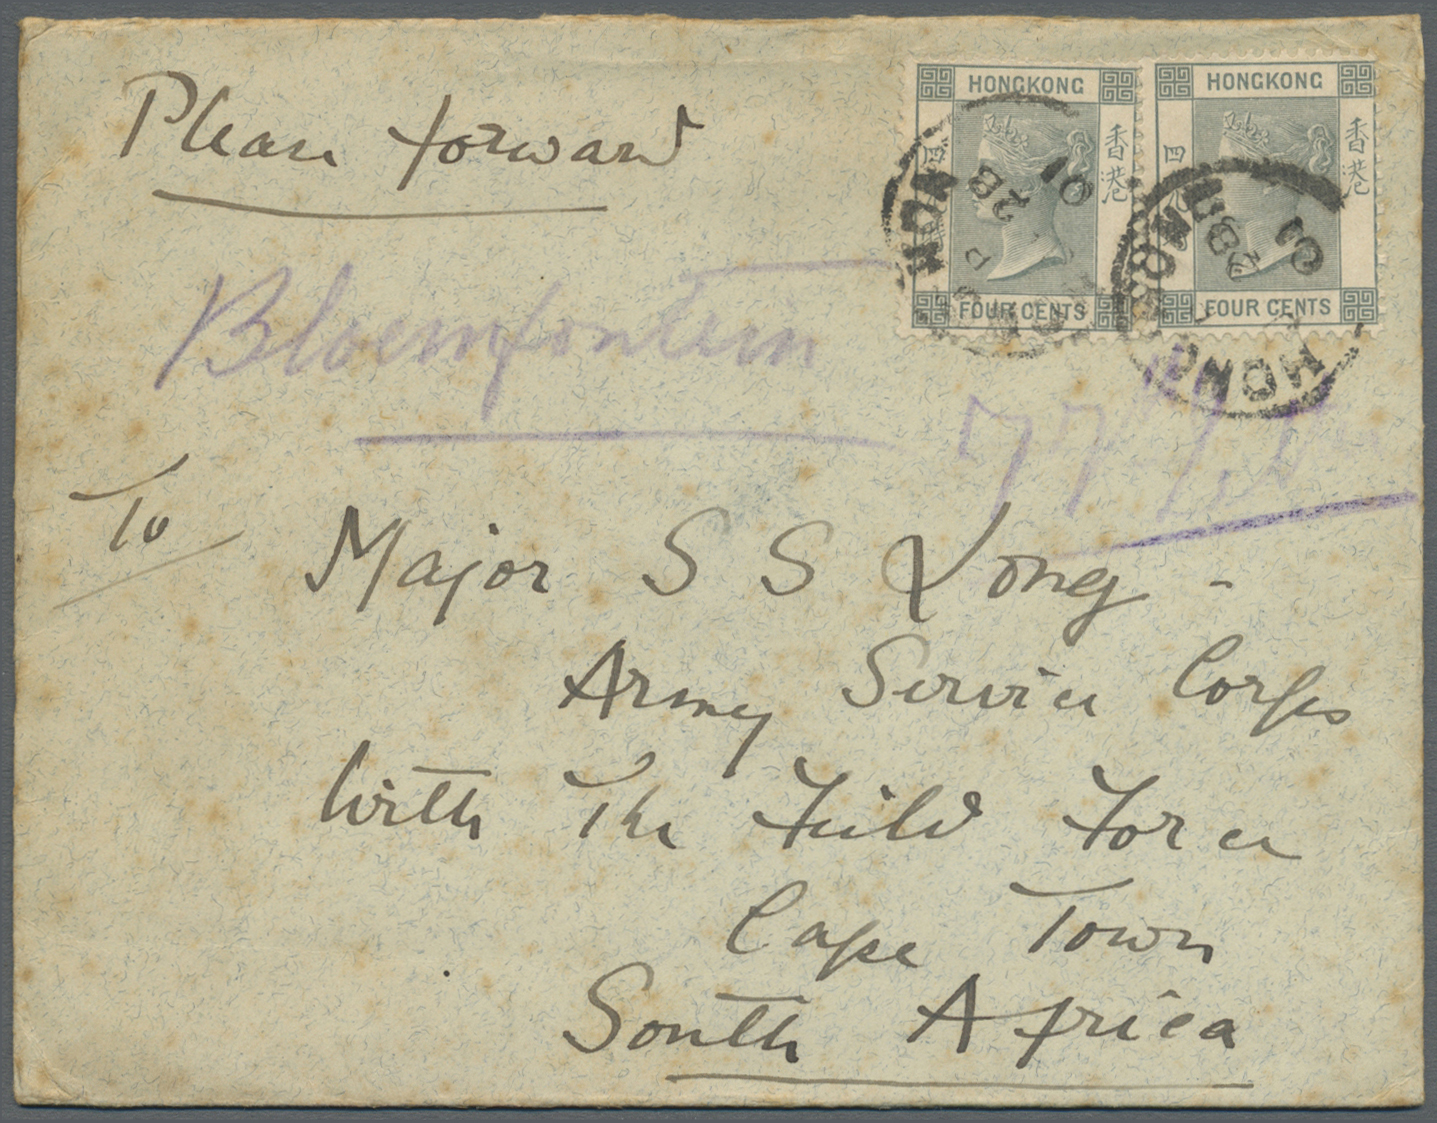 Please forward
HONGKONG
四
香港
FOUR CENTS
HONGKONG
四
香港
FOUR CENTS
HONG KONG
28
01
HONG KONG
28
01
Bloemfontein
77
To
Major S S Long -
Army Service Corps
With The Field Force
Cape Town
South Africa